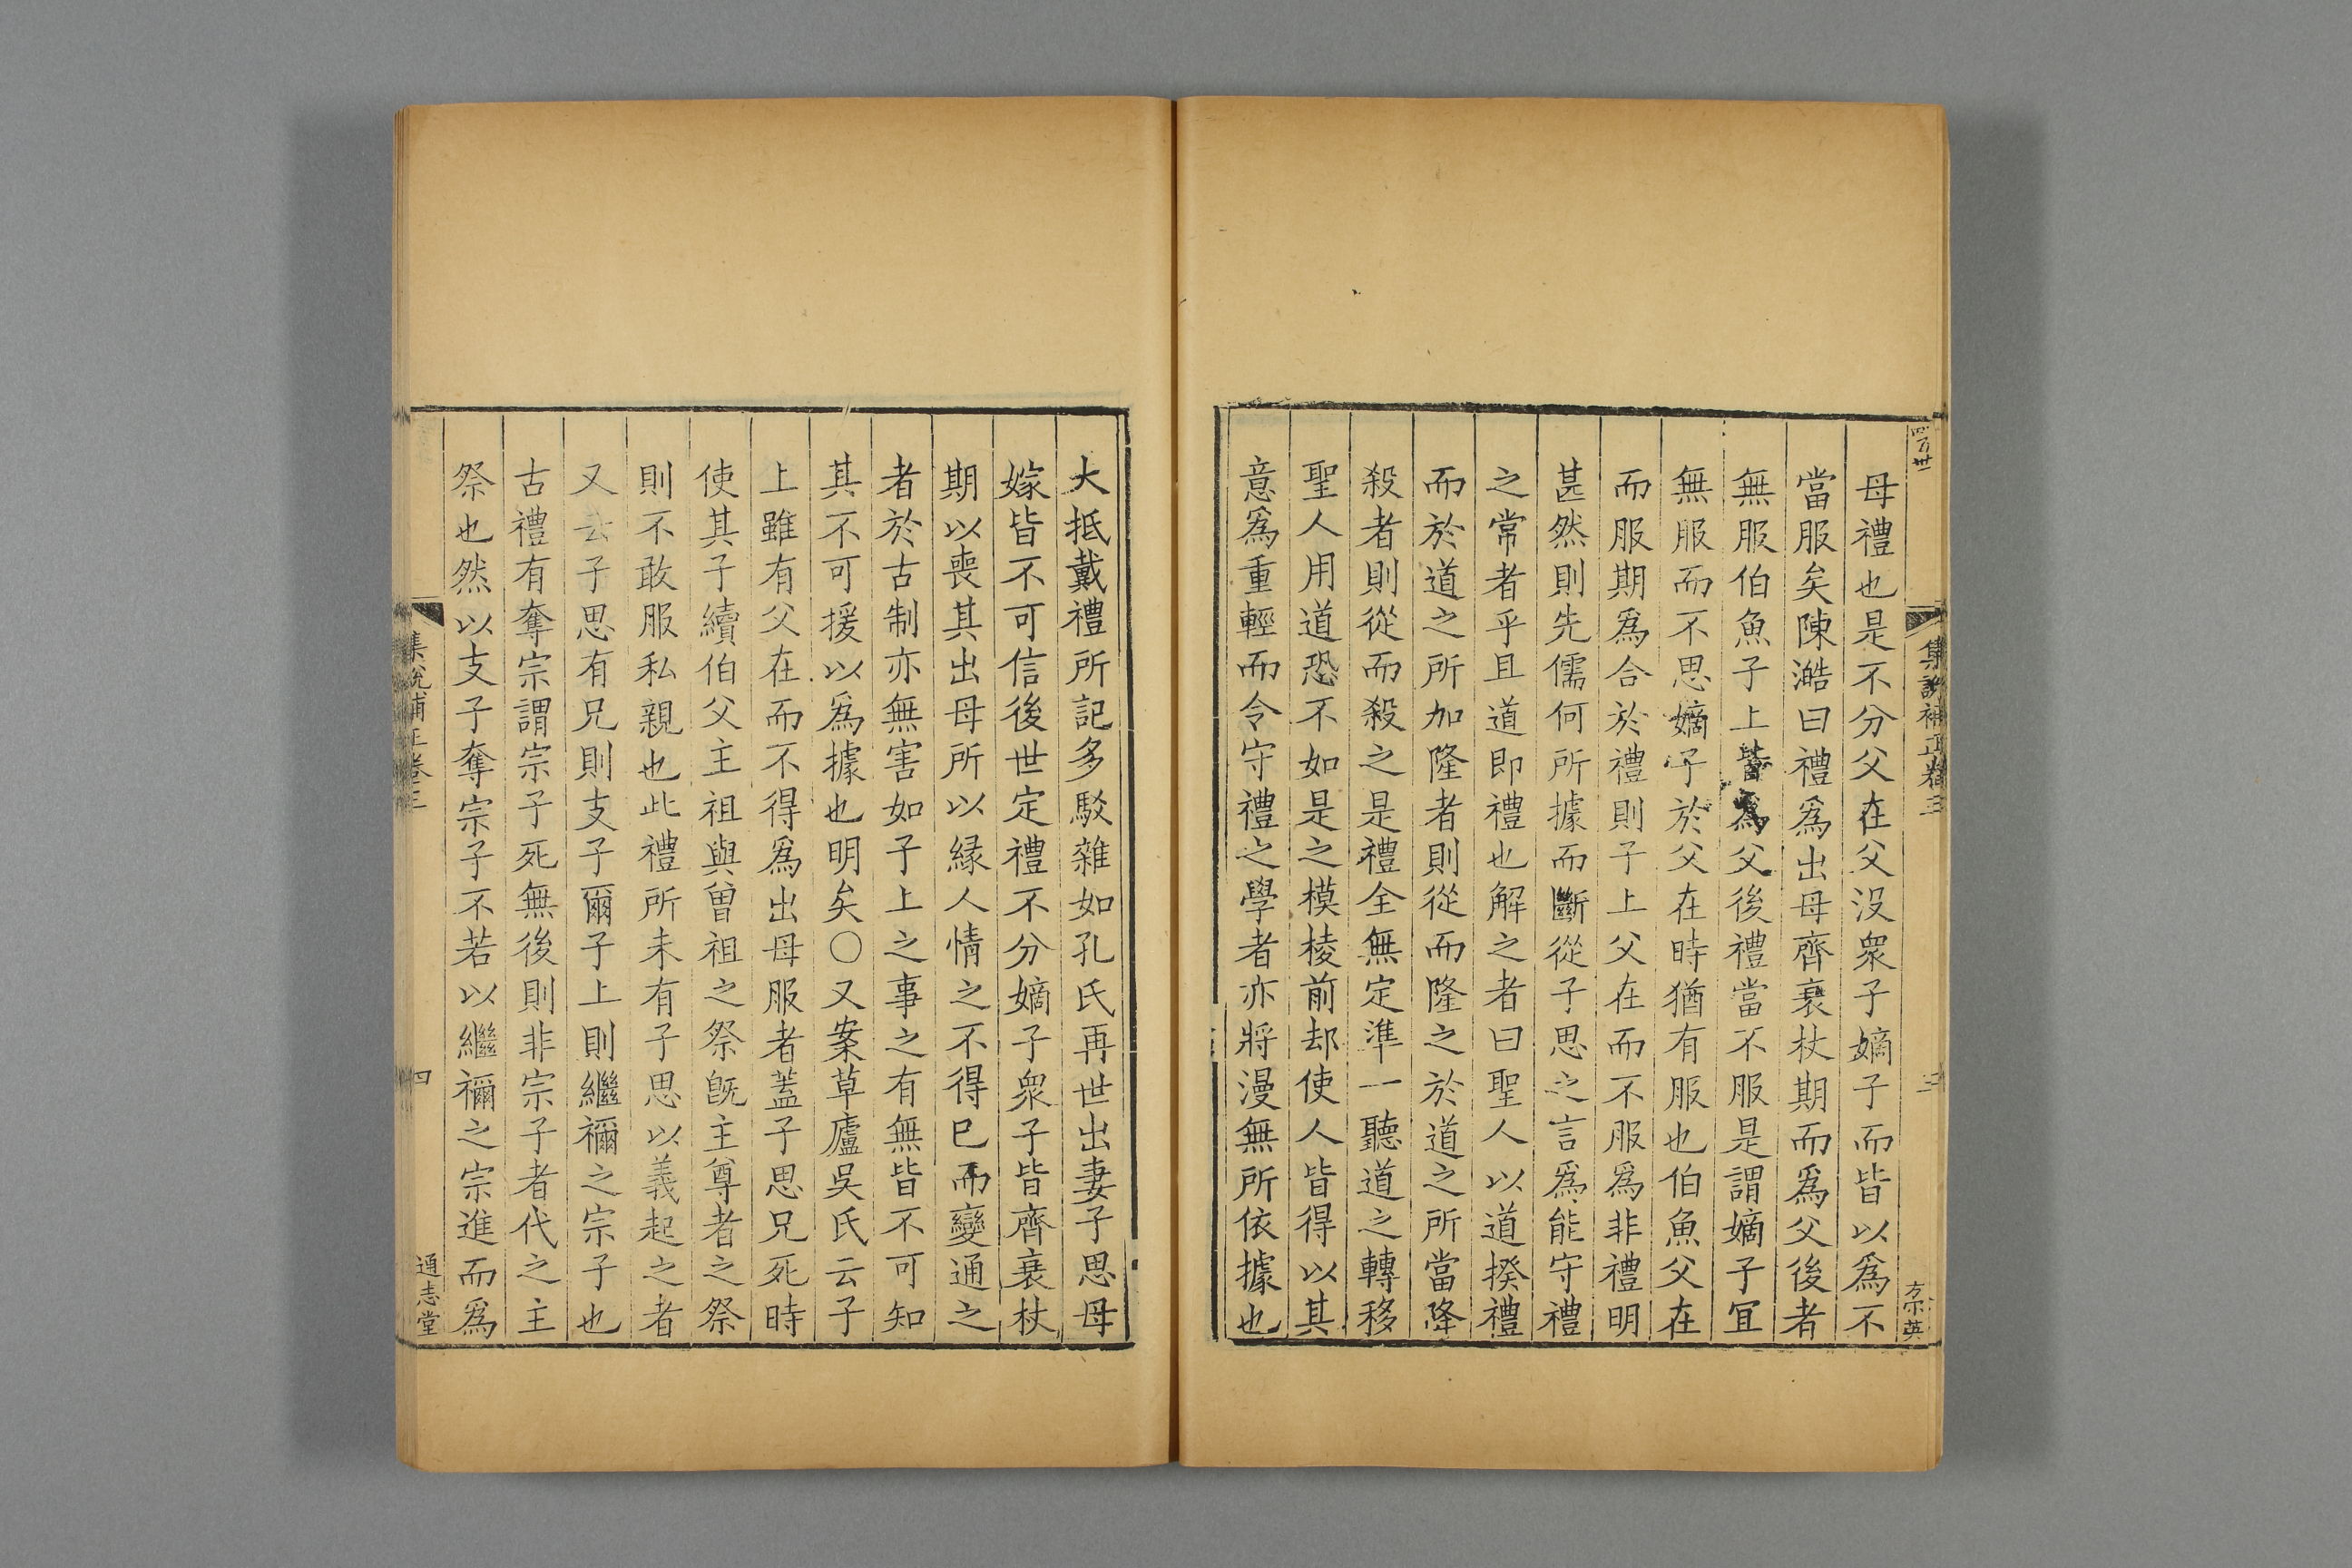 四百廿
集說補正卷三
三
方宗英
母禮也是不分父在父没衆子嫡子而皆以爲不
當服矣陳澔曰禮爲出母齊衰杖期而爲父後者
無服伯魚子上皆爲父後禮當不服是謂嫡子冝
無服而不思嫡子於父在時猶有服也伯魚父在
而服期爲合於禮則子上父在而不服爲非禮明
甚然則先儒何所據而斷從子思之言爲能守禮
之常者乎且道即禮也解之者曰聖人以道揆禮
而於道之所加隆者則從而隆之於道之所當降
殺者則從而殺之是禮全無定準一聽道之轉移
聖人用道恐不如是之模棱前却使人皆得以其
意爲重輕而令守禮之學者亦將漫無所依據也
大抵戴禮所記多駁雜如孔氏再世出妻子思母
嫁皆不可信後世定禮不分嫡子衆子皆齊衰杖
期以喪其出母所以縁人情之不得已而變通之
者於古制亦無害如子上之事之有無皆不可知
其不可援以爲據也明矣〇又案草廬吳氏云子
上雖有父在而不得爲出母服者蓋子思兄死時
使其子續伯父主祖與曾祖之祭旣主尊者之祭
則不敢服私親也此禮所未有子思以義起之者
又云子思有兄則支子爾子上則繼禰之宗子也
古禮有奪宗謂宗子死無後則非宗子者代之主
祭也然以支子奪宗子不若以繼禰之宗進而爲
集說補正卷三
四
通志堂